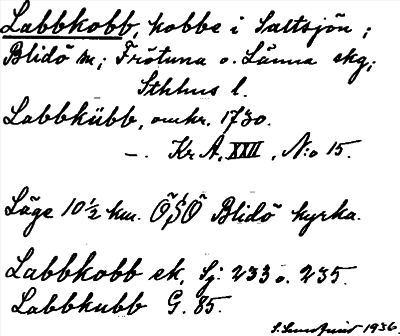 Labbkobb, kobbe i Saltsjön;
Blidö sn; Frötuna o. Länna skg;
Sthlms l.
Labbkübb, omkr. 1730.
—. Kr A, XXII, N:o 15.
Läge 10 ½ km. ÖSÖ Blidö kyrka.
Labbkobb ek. Sj. 233 o. 235.
Labbkubb G. 85.
1936.